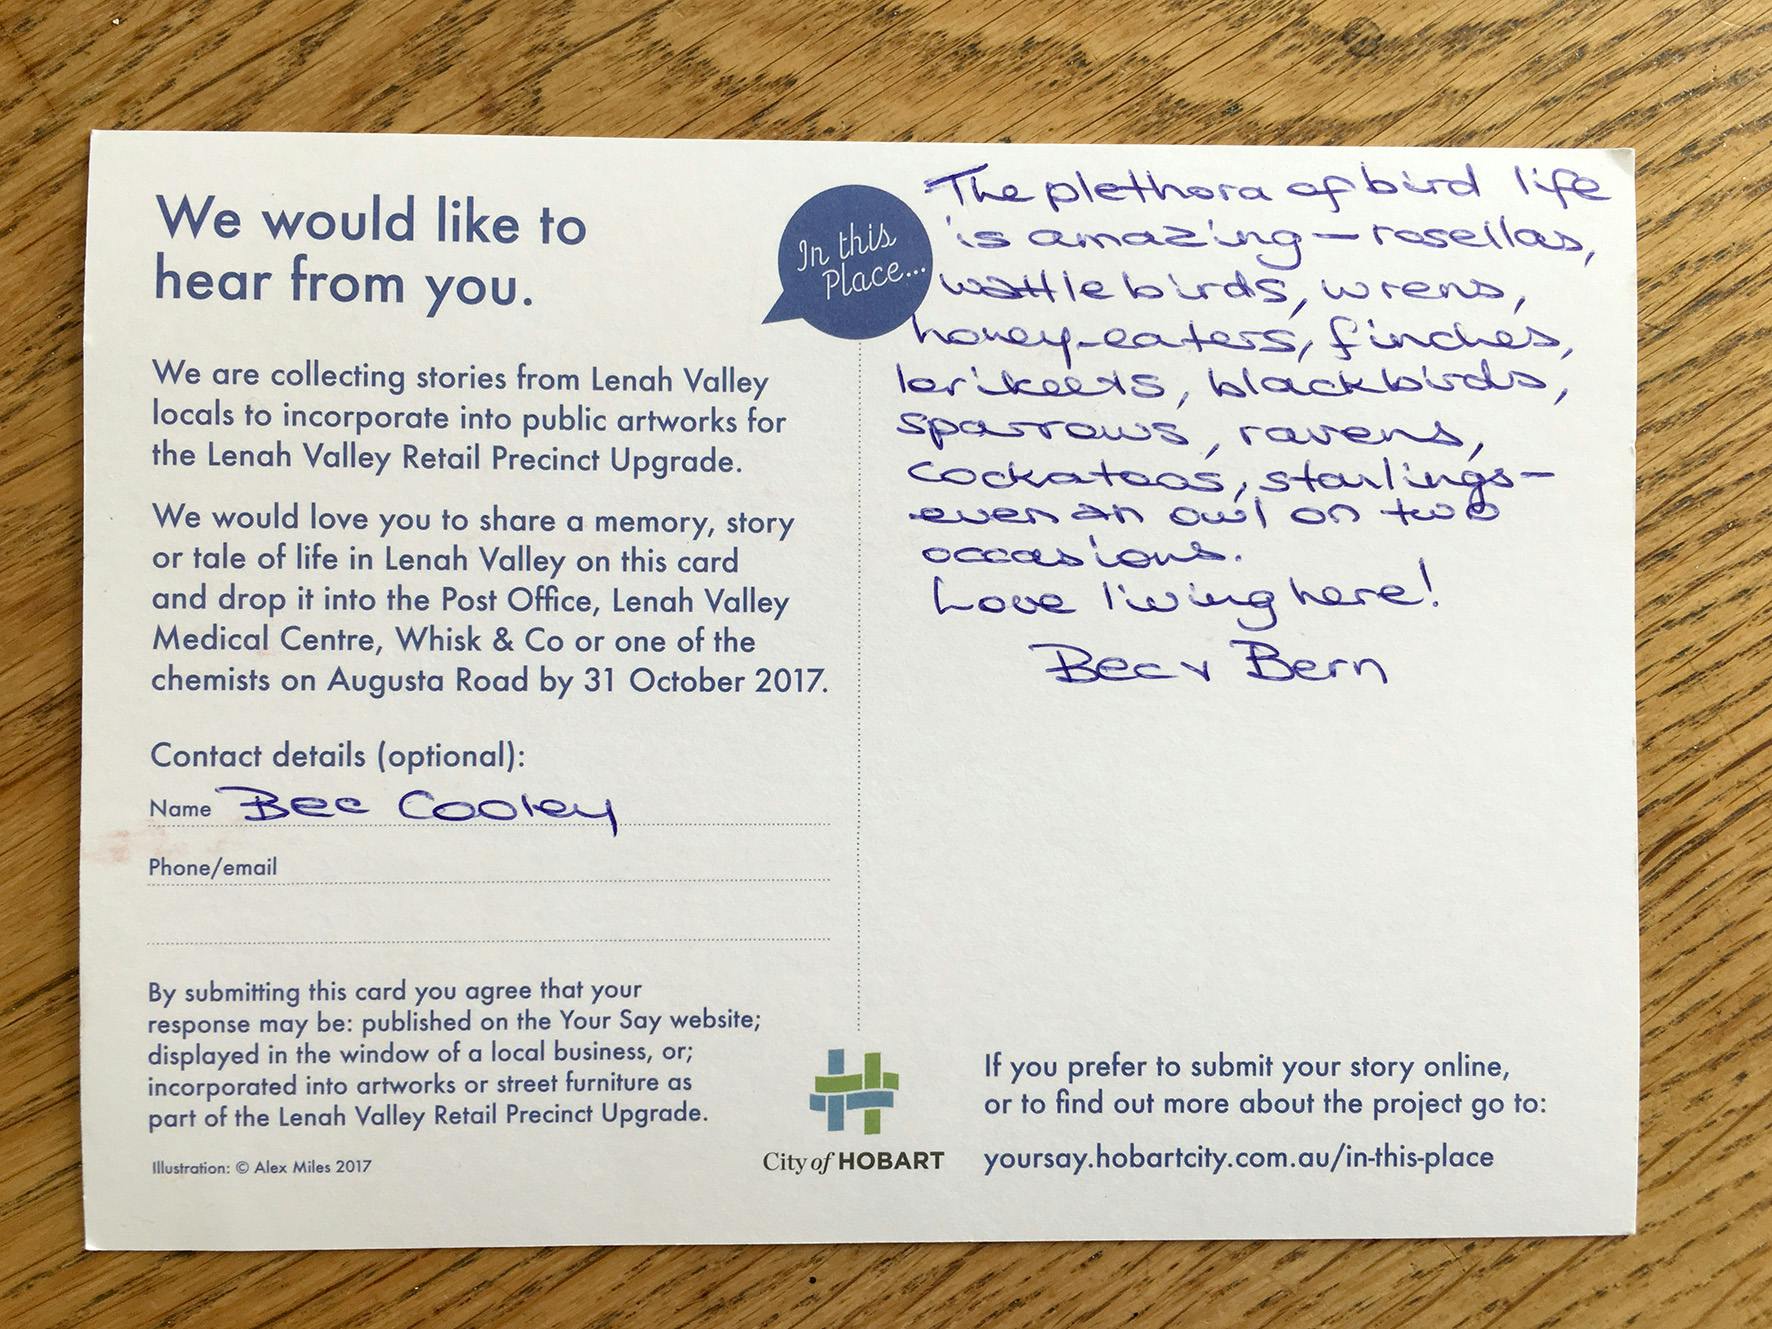 We would like to
hear from you.
We are collecting stories from Lenah Valley
locals to incorporate into public artworks for
the Lenah Valley Retail Precinct Upgrade.
We would love you to share a memory, story
or tale of life in Lenah Valley on this card
and drop it into the Post Office, Lenah Valley
Medical Centre, Whisk & Co or one of the
chemists on Augusta Road by 31 October 2017.
Contact details (optional):
Name Bec Cooley
Phone/email
By submitting this card you agree that your
response may be: published on the Your Say website;
displayed in the window of a local business, or;
incorporated into artworks or street furniture as
part of the Lenah Valley Retail Precinct Upgrade.
Illustration: © Alex Miles 2017
In this
Place...
The plethora of bird life
is amazing - rosellas,
wattle birds, wrens,
honey-eaters, finches,
lorikeets, blackbirds,
sparrows, ravens,
cockatoos, starlings -
even an owl on two
occasions.
Love living here!
Bec + Bern
City of HOBART
If you prefer to submit your story online,
or to find out more about the project go to:
yoursay.hobartcity.com.au/in-this-place